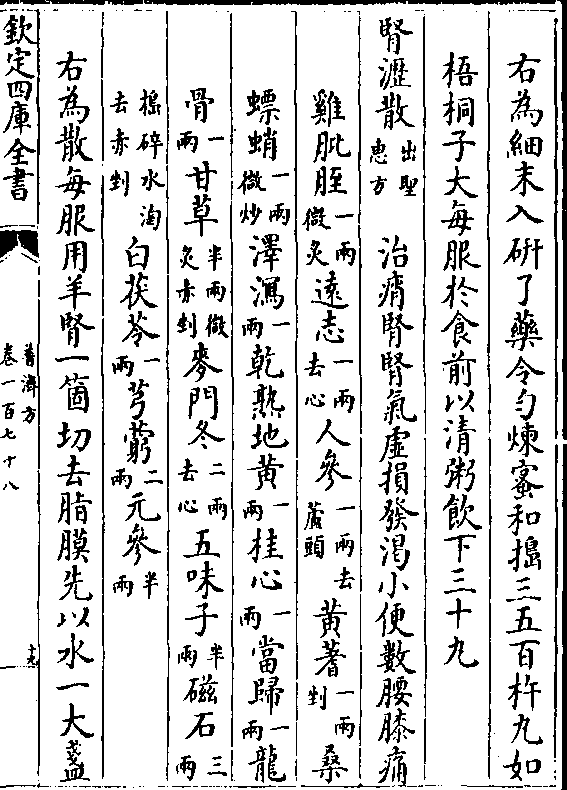 右為細末入研了藥令勻煉蜜和搗三五百杵丸如
梧桐子大每服於食前以清粥飲下三十丸
腎瀝散出聖惠方 治痟腎腎氣虛損發渴小便數腰膝痛
雞肶胵一兩微炙遠志一兩去心人參一兩去蘆頭黃蓍一兩剉桑
螵蛸一兩微炒澤瀉一兩乾熟地黃一兩桂心一兩當歸一兩龍
骨一兩甘草半兩微炙赤剉麥門冬二兩去心五味子半兩磁石三兩
搗碎水淘去赤剉白茯苓一兩芎藭二兩元參半兩
右為散每服用羊腎一箇切去脂膜先以水一大盞
欽定四庫全書
普濟方
卷一百七十八
十九